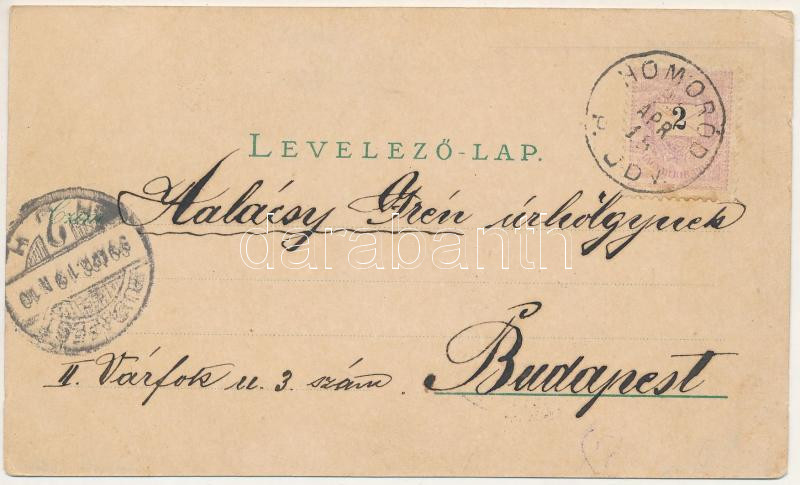 HOMORÓD
P. UDV.
99
APR
15
2
LEVELEZŐ-LAP.
Halácsy Irén úrhölgynek
darabanth
BUDAPEST
99 APR. 19 N 10
II. Várfok u. 3. szám. Budapest